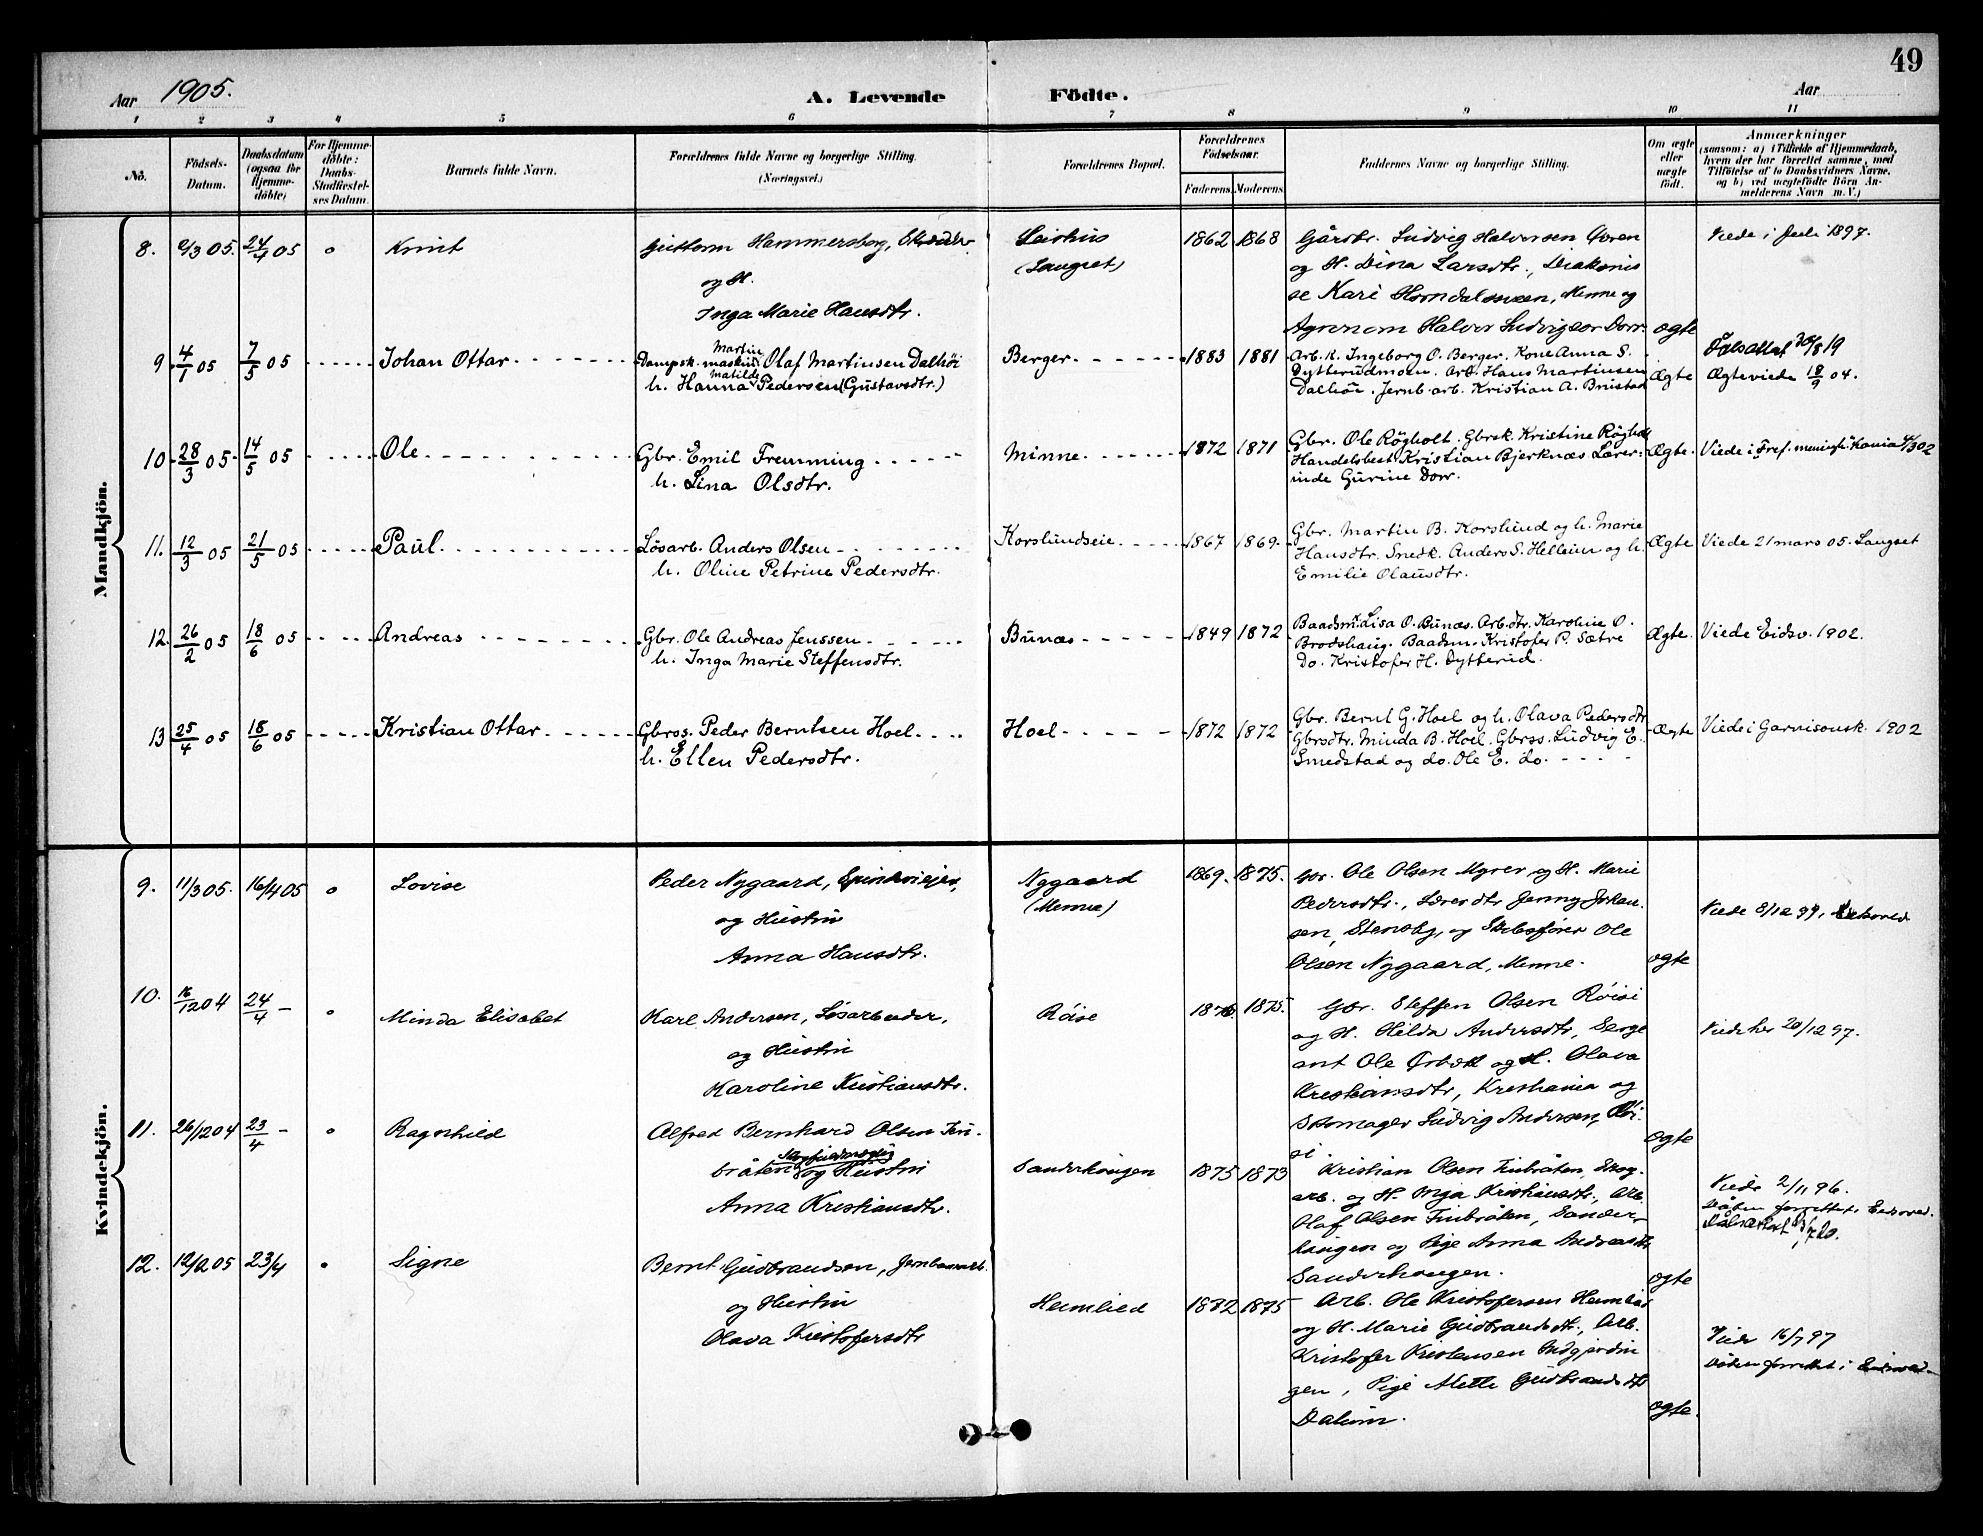 49
Aar 1905.
A. Levende Födte.
Aar
1 2 3 4 5 6 7 8 9 10 11
No.
Födsels-Datum.
Daabsdatum (ogsaa for Hjemme-döbte)
For Hjemme-döbte: Daabs-Stadfæstel-ses Datum.
Barnets fulde Navn.
Forældrenes fulde Navne og borgerlige Stilling.
(Næringsvei.)
Forældrenes Bopæl.
Forældrenes Födselsaar.
Faderens. Moderens.
Faddernes Navne og borgerlige Stilling.
Om ægte eller uægte födt.
Anmærkninger
(saasom: a) i Tilfælde af Hjemmedaab,
hvem der har forrettet samme, med
Tilföielse af to Daabsvidners Navne,
og b) ved uægtefödte Börn An-
melderens Navn m. V.)
Mandkjön.
8. 2/3 05. 24/4 05 o Knut
Guttorm Hammersborg,
og H.
Inga Marie Hansdtr.
Leirhus
(Langset)
1862 1868
Gårdbr. Ludvig Halvorsen Doren
og H. Dina Larsdtr., Diakonis
se Kari Horndalsveen, Minne og
Agronom Halvor Ludvigsen Dorr.
ægte
Viede i Juli 1897.
9 4/1 05 7/5 05 Johan Ottar
Martin
Dampsk. maskin. Olaf Martinsen Dalhöi
Matilde
h. Hanna Pedersen (Gustavsdtr.)
Berger.
1883 1881
Arb. k. Ingeborg O. Berger. Kone Anna S.
Dytterudmoen. Arb. Hans Martinsen
Dalhöi. Jernb. arb. Kristian A. Brustad
Ægte
Daabsattest 30/8 19
Ægteviede 18/9 04.
10 28/3 05 14/5 05 Ole
Gbr. Emil Fremming
h. Lina Olsdtr.
Minne.
1872 1871
Gbr. Ole Rögholt. Gbrsk. Kristine Rögholt
Handelsbest. Kristian Bjerknæs Lærer-
inde Gurine Dorr.
Ægte.
Viede i Tref. menigh. Kania 4/3 02
11. 12/3 05 21/5 05 Paul
Lösarb. Anders Olsen
h. Oline Petrine Pedersdtr.
Korslundseie.
1867 1869.
Gbr. Martin B. Korslund og h. Marie
Hansdtr. Snedk. Anders S. Helleim og h.
Emilie Olausdtr.
Ægte
Viede 21 mars 05. Langset
12. 26/2 05 18/6 05 Andreas
Gbr. Ole Andreas Jenssen
h. Inga Marie Steffensdtr.
Bunæs
1849 1872
Baadsm. Lisa O. Bunæs. Arb.dtr. Karoline O.
Brodshaug. Baadsm. Kristofer P. Sætre
Do. Kristofer H. Dytterud.
Ægte.
Viede Eidsv. 1902.
13 25/4 05 18/6 05 Kristian Ottar
Gbrss. Peder Berntsen Hoel
h. Ellen Pedersdtr.
Hoel
1872 1872
Gbr. Bernt G. Hoel og h. Olava Pedersdtr
Gbrsdtr. Minda B. Hoel. Gbrss. Ludvig E.
Smedstad og do. Ole E. do.
Ægte
Viede i Garnisonsk. 1902
Kvindekjön.
9. 11/3 05. 16/4 05 o Lovise
Peder Nygaard,
og Hustru
Anna Hansdtr.
Nygaard
(Minne)
1869. 1875.
Gbr. Ole Olsen Myrer og H. Marie
Pedersdtr., Lærerdtr Jenny Johan-
sen, Stensby, og Skibsfører Ole
Olsen Nygaard, Minne.
ægte
Viede 8/12 99, Eidsvold
10. 16/12 04 24/4 – o Minda Elisabet
Karl Andersen, Løsarbeider,
og Hustru
Karoline Kristiansdtr.
Röise
1876 1875.
Gbr. Steffen Olsen Röisi
og H. Hilda Andersdtr, Serge
ant Ole Orbæk og H. Olava
Kristiansdtr, Kristiania og
Skomager Ludvig Andersen, Röi-
si.
ægte
Viede her 20/12 97.
11. 26/12 04 23/4 – o Ragnhild
Alfred Bernhard Olsen Fin-
bråten og Hustru
Anna Kristiansdtr.
Sanderhaugen
1875 1873
Kristian Olsen Finbråten, Skog-
arb. og H. Inga Kristiansdtr., Arb.
Olaf Olsen Finbråten, Sander-
haugen og Pige Anna Andersdtr
Sanderhaugen.
ægte
Viede 2/11 96.
Dåben forrettet i Eidsvold.
12. 12/2 05 23/4 o Signe
Bernt Gudbrandsen, Jernbanearb.
og Hustru
Olava Kristofersdtr
Heimlied
1872 1875
Arb. Ole Kristofersen Heimlied
og H. Marie Gudbrandsdtr., Arb.
Kristofer Kristensen Midgjordin
gen, Pige Mette Gudbrandsdtr
Dalum.
ægte.
Viede 16/7 97
Dåben forrettet i Eidsvold